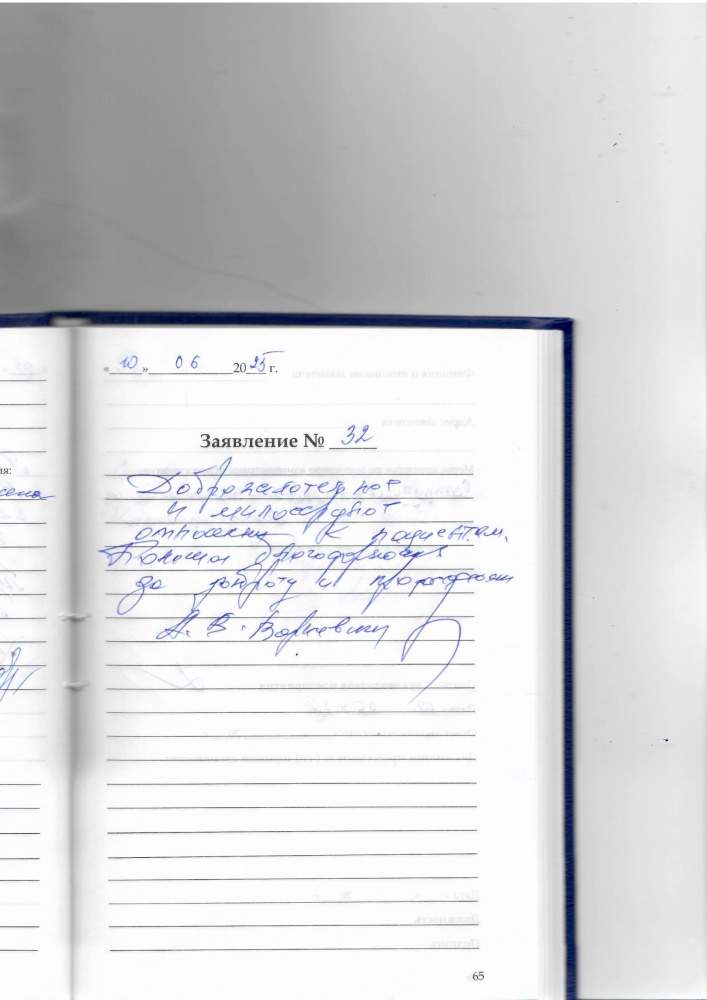 «10» 06 2025 г.
Заявление № 32
ия:
Доброжелательное
и милосердное
отношение к пациентам.
Большая благодарность
за доброту и
А. В.
65